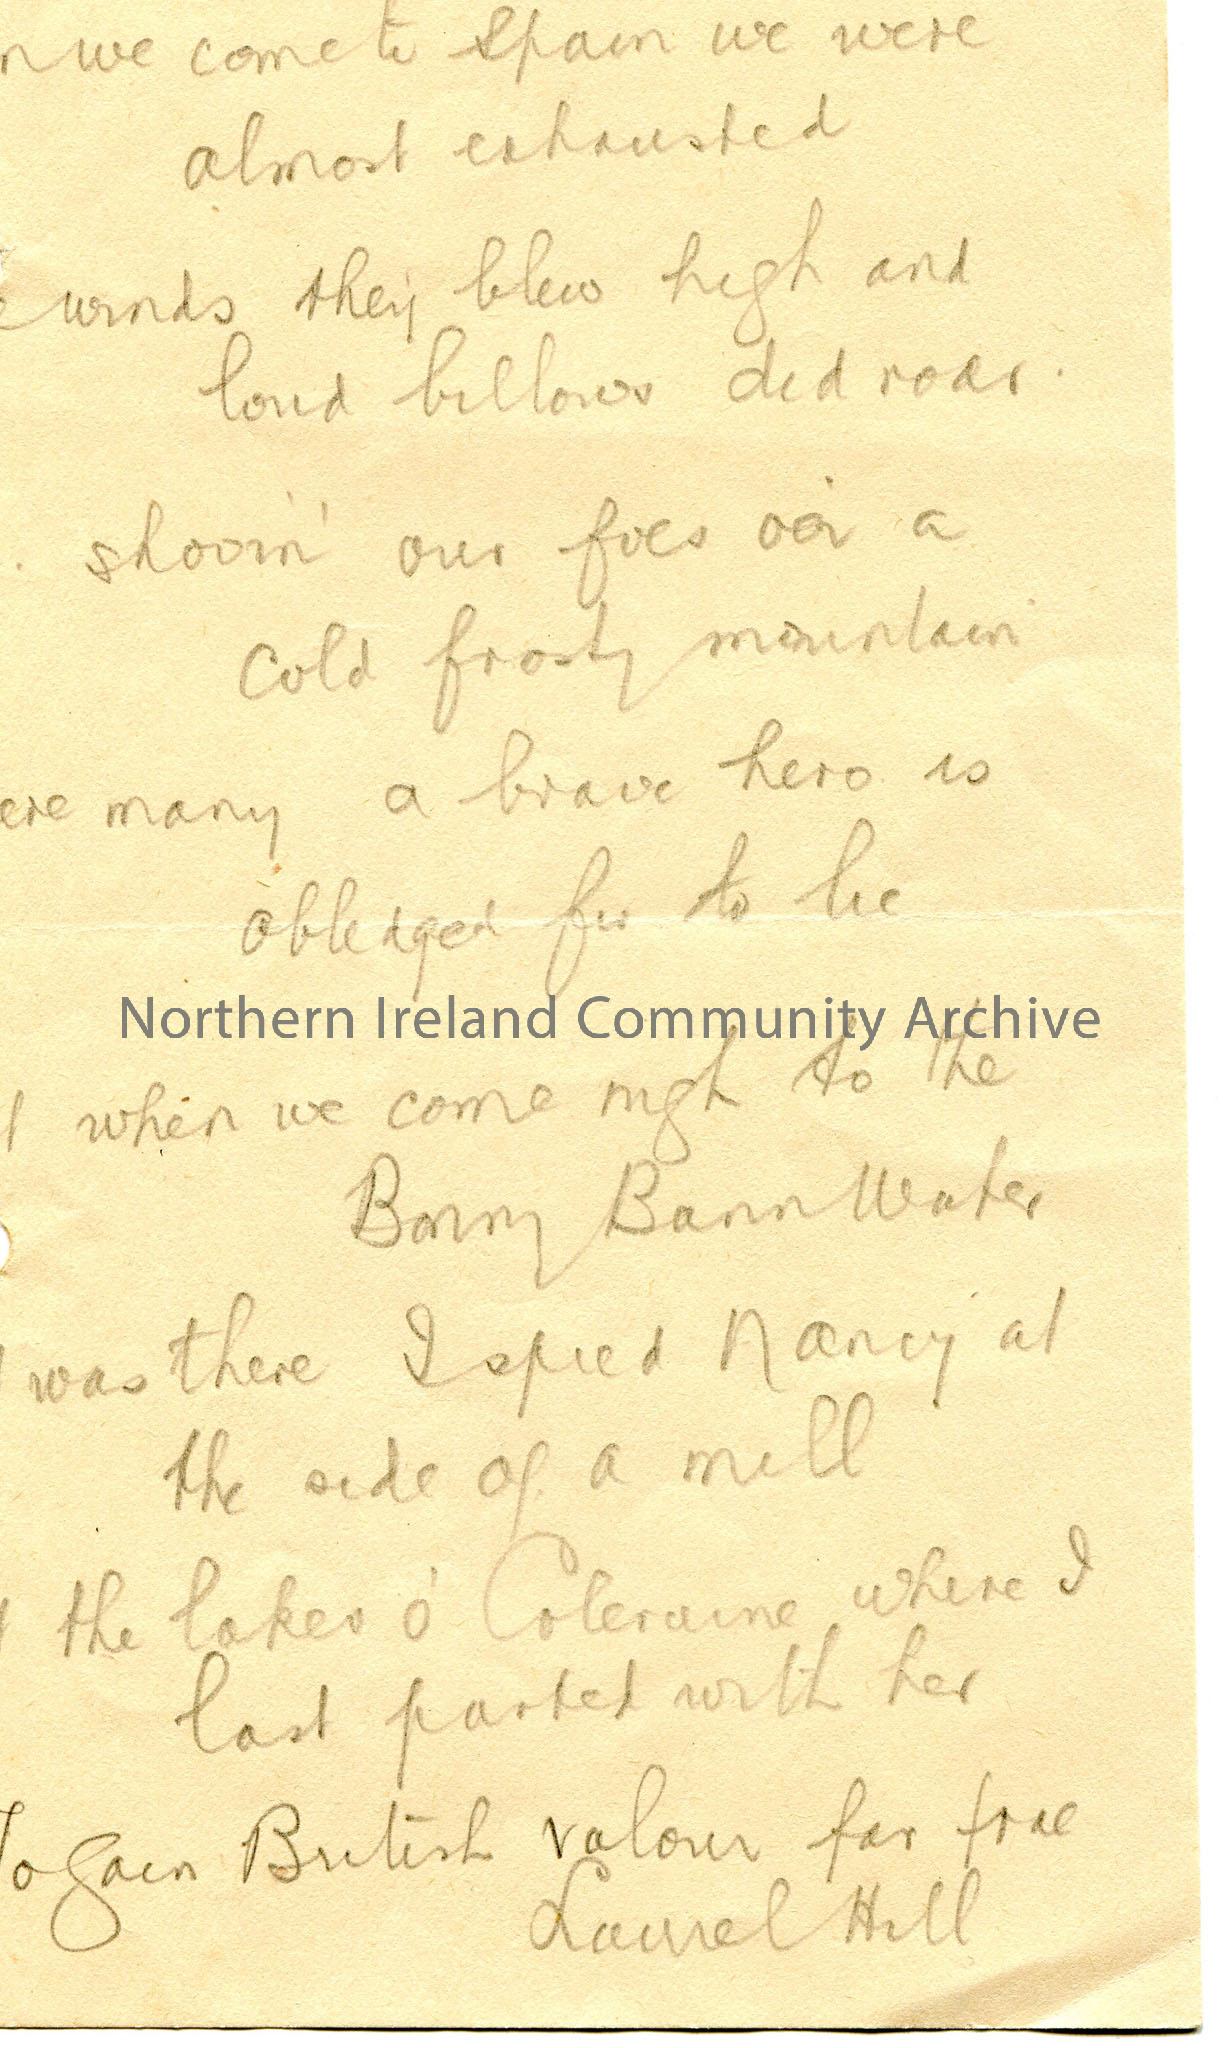 n we come to Spain we were
almost exhausted
e winds they blew high and
loud billows did roar.
. shovin' our foes o'er a
cold frosty mountain
ere many a brave hero is
obledged for to lie
Northern Ireland Community Archive
when we come nigh to the
Bonny Bann Water
was there I spied Nancy at
the side of a mill
the lakes o' Coleraine where I
last parted with her
To gain British valour far frae
Laurel Hill